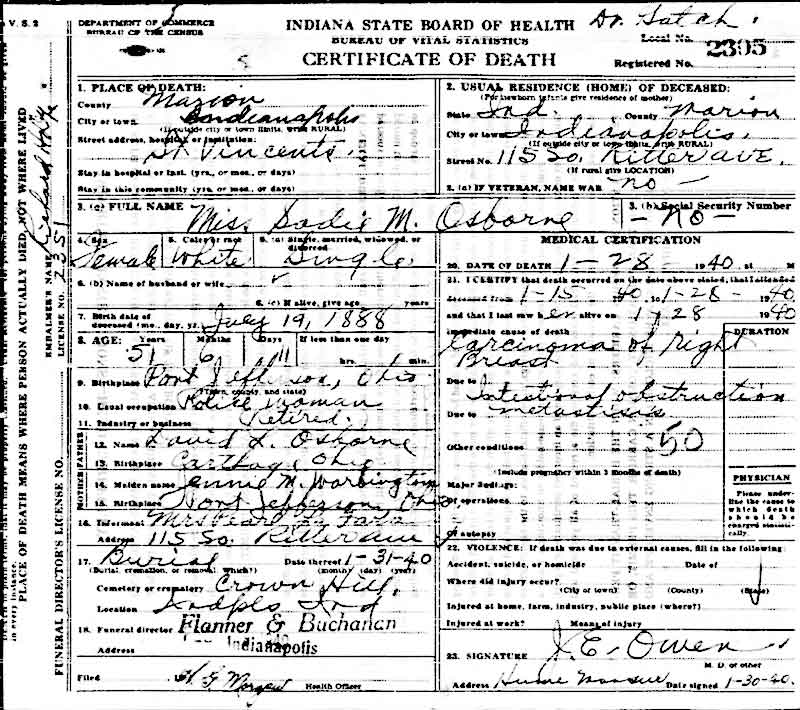 V. S. 2
DEPARTMENT OF COMMERCE
BUREAU OF THE CENSUS
INDIANA STATE BOARD OF HEALTH
BUREAU OF VITAL STATISTICS
CERTIFICATE OF DEATH
Local No.
Registered No. 2395
1. PLACE OF DEATH:
County Marion
City or town Indianapolis
(If outside city or town limits, write RURAL)
Street address, hospital or institution:
St Vincents.
Stay in hospital or inst. (yrs., or mos., or days)
Stay in this community (yrs., or mos., or days)
2. USUAL RESIDENCE (HOME) OF DECEASED:
(For newborn infants give residence of mother)
State Ind. County Marion
City or town Indianapolis.
(If outside city or town limits, write RURAL)
Street No. 115 So. Ritter AVE.
(If rural give LOCATION)
2. (a) IF VETERAN, NAME WAR - no -
3. (a) FULL NAME Miss Sadie M. Osborne
3. (b) Social Security Number
- no -
4. Sex Female
5. Color or race White
6. (a) Single, married, widowed, or divorced Single
6. (b) Name of husband or wife
6. (c) If alive, give age years
7. Birth date of deceased (mo., day, yr.) July 19, 1888
8. AGE: Years 51 Months 6 Days 11 If less than one day hrs. min.
9. Birthplace Port Jefferson, Ohio
(Town, county, and state)
10. Usual occupation Police Woman
11. Industry or business Retired.
FATHER
12. Name David L. Osborne
13. Birthplace Carthage Ohio
MOTHER
14. Maiden name Jennie M. Warbington
15. Birthplace Port Jefferson, Ohio
16. Informant Mrs Pearl
Address 115 So. Ritter Ave
17. Burial Date thereof 1-31-40
(Burial, cremation, or removal. Which?) (month) (day) (year)
Cemetery or crematory Crown Hill,
Location Indpls Ind
18. Funeral director Flanner & Buchanan
Address Indianapolis
Filed
Health Officer
MEDICAL CERTIFICATION
20. DATE OF DEATH 1-28 1940 at M
21. I CERTIFY that death occurred on the date above stated, that I attended
deceased from 1-15 1940, to 1-28- 1940
and that I last saw her alive on 1/28 1940
Immediate cause of death
DURATION
Carcinoma of right
Breast
Due to Intestional obstruction
Due to metastisois
Other conditions
50
(Include pregnancy within 3 months of death)
Major findings:
Of operations
Of autopsy
PHYSICIAN
Please underline the cause to which death should be charged statistically.
22. VIOLENCE: If death was due to external causes, fill in the following:
Accident, suicide, or homicide Date of
Where did injury occur?
(City or town) (County) (State)
Injured at home, farm, industry, public place (where?)
Injured at work? Means of injury
23. SIGNATURE J. E. Owen
M. D. or other
Address Date signed 1-30-40.
PLACE OF DEATH MEANS WHERE PERSON ACTUALLY DIED, NOT WHERE LIVED
EMBALMER'S NAME Richard
LICENSE NO. 2351
FUNERAL DIRECTOR'S LICENSE NO.